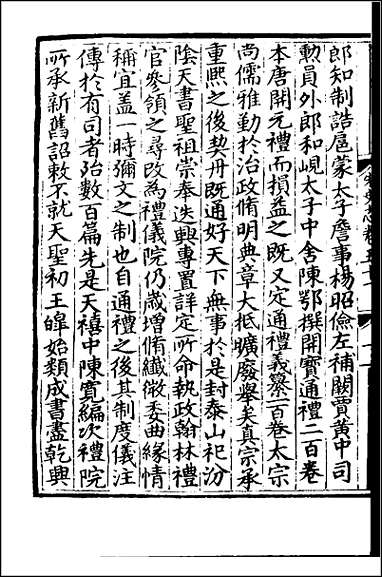 郎知制誥扈蒙太子詹事楊昭儉左補闕賈黃中司
勲員外郎和峴太子中舍陳鄂撰開寶通禮二百卷
本唐開元禮而損益之既又定通禮義纂一百卷太宗
尚儒雅勤於治政脩明典章大抵曠廢舉矣真宗承
重熙之後契丹既通好天下無事於是封泰山祀汾
陰天書聖祖崇奉迭興專置詳定所命執政翰林禮
官參領之尋改為禮儀院仍歲增脩纖微委曲緣情
稱宜盖一時彌文之制也自通禮之後其制度儀注
傳於有司者殆數百篇先是天禧中陳寛編次禮院
所承新舊詔敕不就天聖初王皥始類成書盡乾興